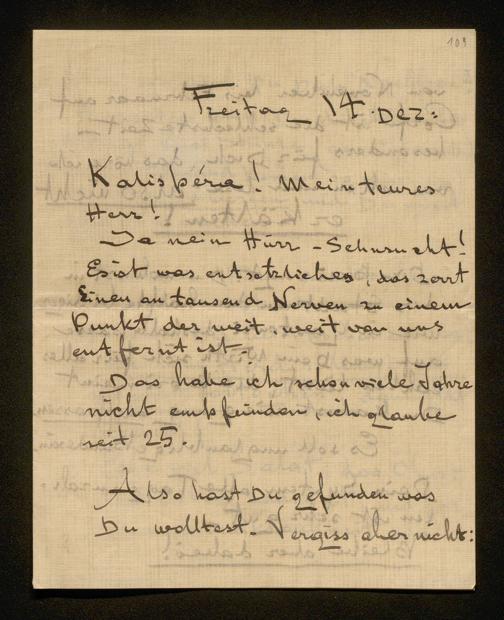 109
Freitag 14. Dez:
Kalispéra! Mein teures
Herr!
Ja mein Hürr - Sehnsucht!
Es ist was entsetzliches, das zerrt
Einen an tausend Nerven zu einem
Punkt der weit, weit von uns
entfernt ist -
Das habe ich schon viele Jahre
nicht empfunden, ich glaube
seit 25.
Also hast Du gefunden was
Du wolltest. Vergiss aber nicht: